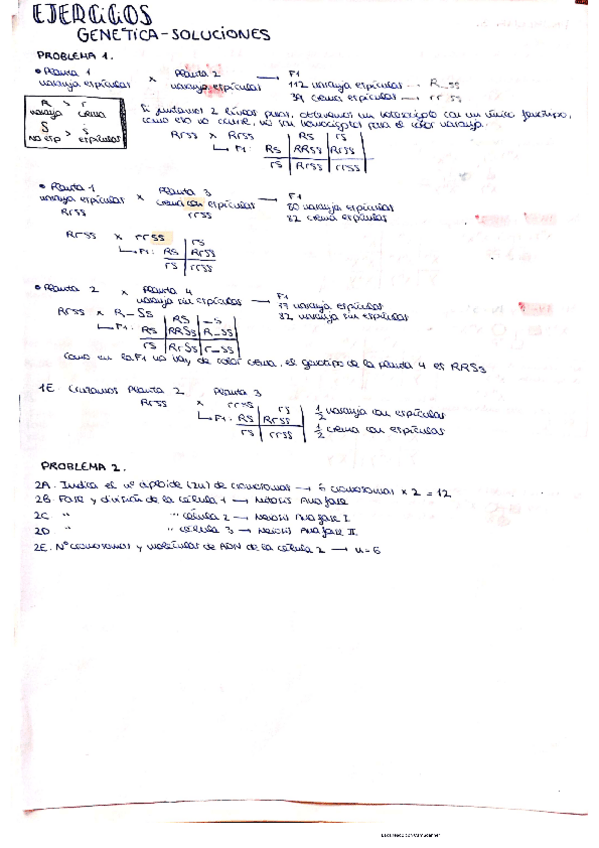 EJERCICIOS
GENETICA - SOLUCIONES
PROBLEMA 1.
• Planta 1 x Planta 2 → F1
naranja espículas naranja espículas 112 naranja espículas → R_ss
39 crema espículas → rr ss
R > r
naranja crema
S > s
No esp > espículas
Si juntamos 2 líneas puras, obtenemos un heterocigoto con un único fenotipo,
como eso no ocurre, no son homocigotos para el color naranja.
Rrss x Rrss
F1: Rs rs
Rs RRss Rrss
rs Rrss rrss
• Planta 1 x Planta 3 → F1
naranja espículas crema con espículas 80 naranja espículas
Rrss rrss 82 crema espículas
Rrss x rrss
F1: rs
Rs Rrss
rs rrss
• Planta 2 x Planta 4 → F1
naranja sin espículas naranja espículas
82 naranja sin espículas
Rrss x R_Ss
F1: RS _s
Rs RRSs R_ss
rs RrSs r_ss
Como en la F1 no hay de color crema, el genotipo de la planta 4 es RRSs
1E. Cruzamos Planta 2 x Planta 3
Rrss rrss
F1: rs
Rs Rrss
rs rrss
1/2 naranja con espículas
1/2 crema con espículas
PROBLEMA 2.
2A. Indica el nº diploide (2n) de cromosomas → 6 cromosomas x 2 = 12
2B Fase y división de la célula 1 → Mitosis Anafase
2C " " célula 2 → Meiosis Anafase I
2D " " célula 3 → Meiosis Anafase II
2E. Nº cromosomas y moléculas de ADN de la célula 2 → n=6